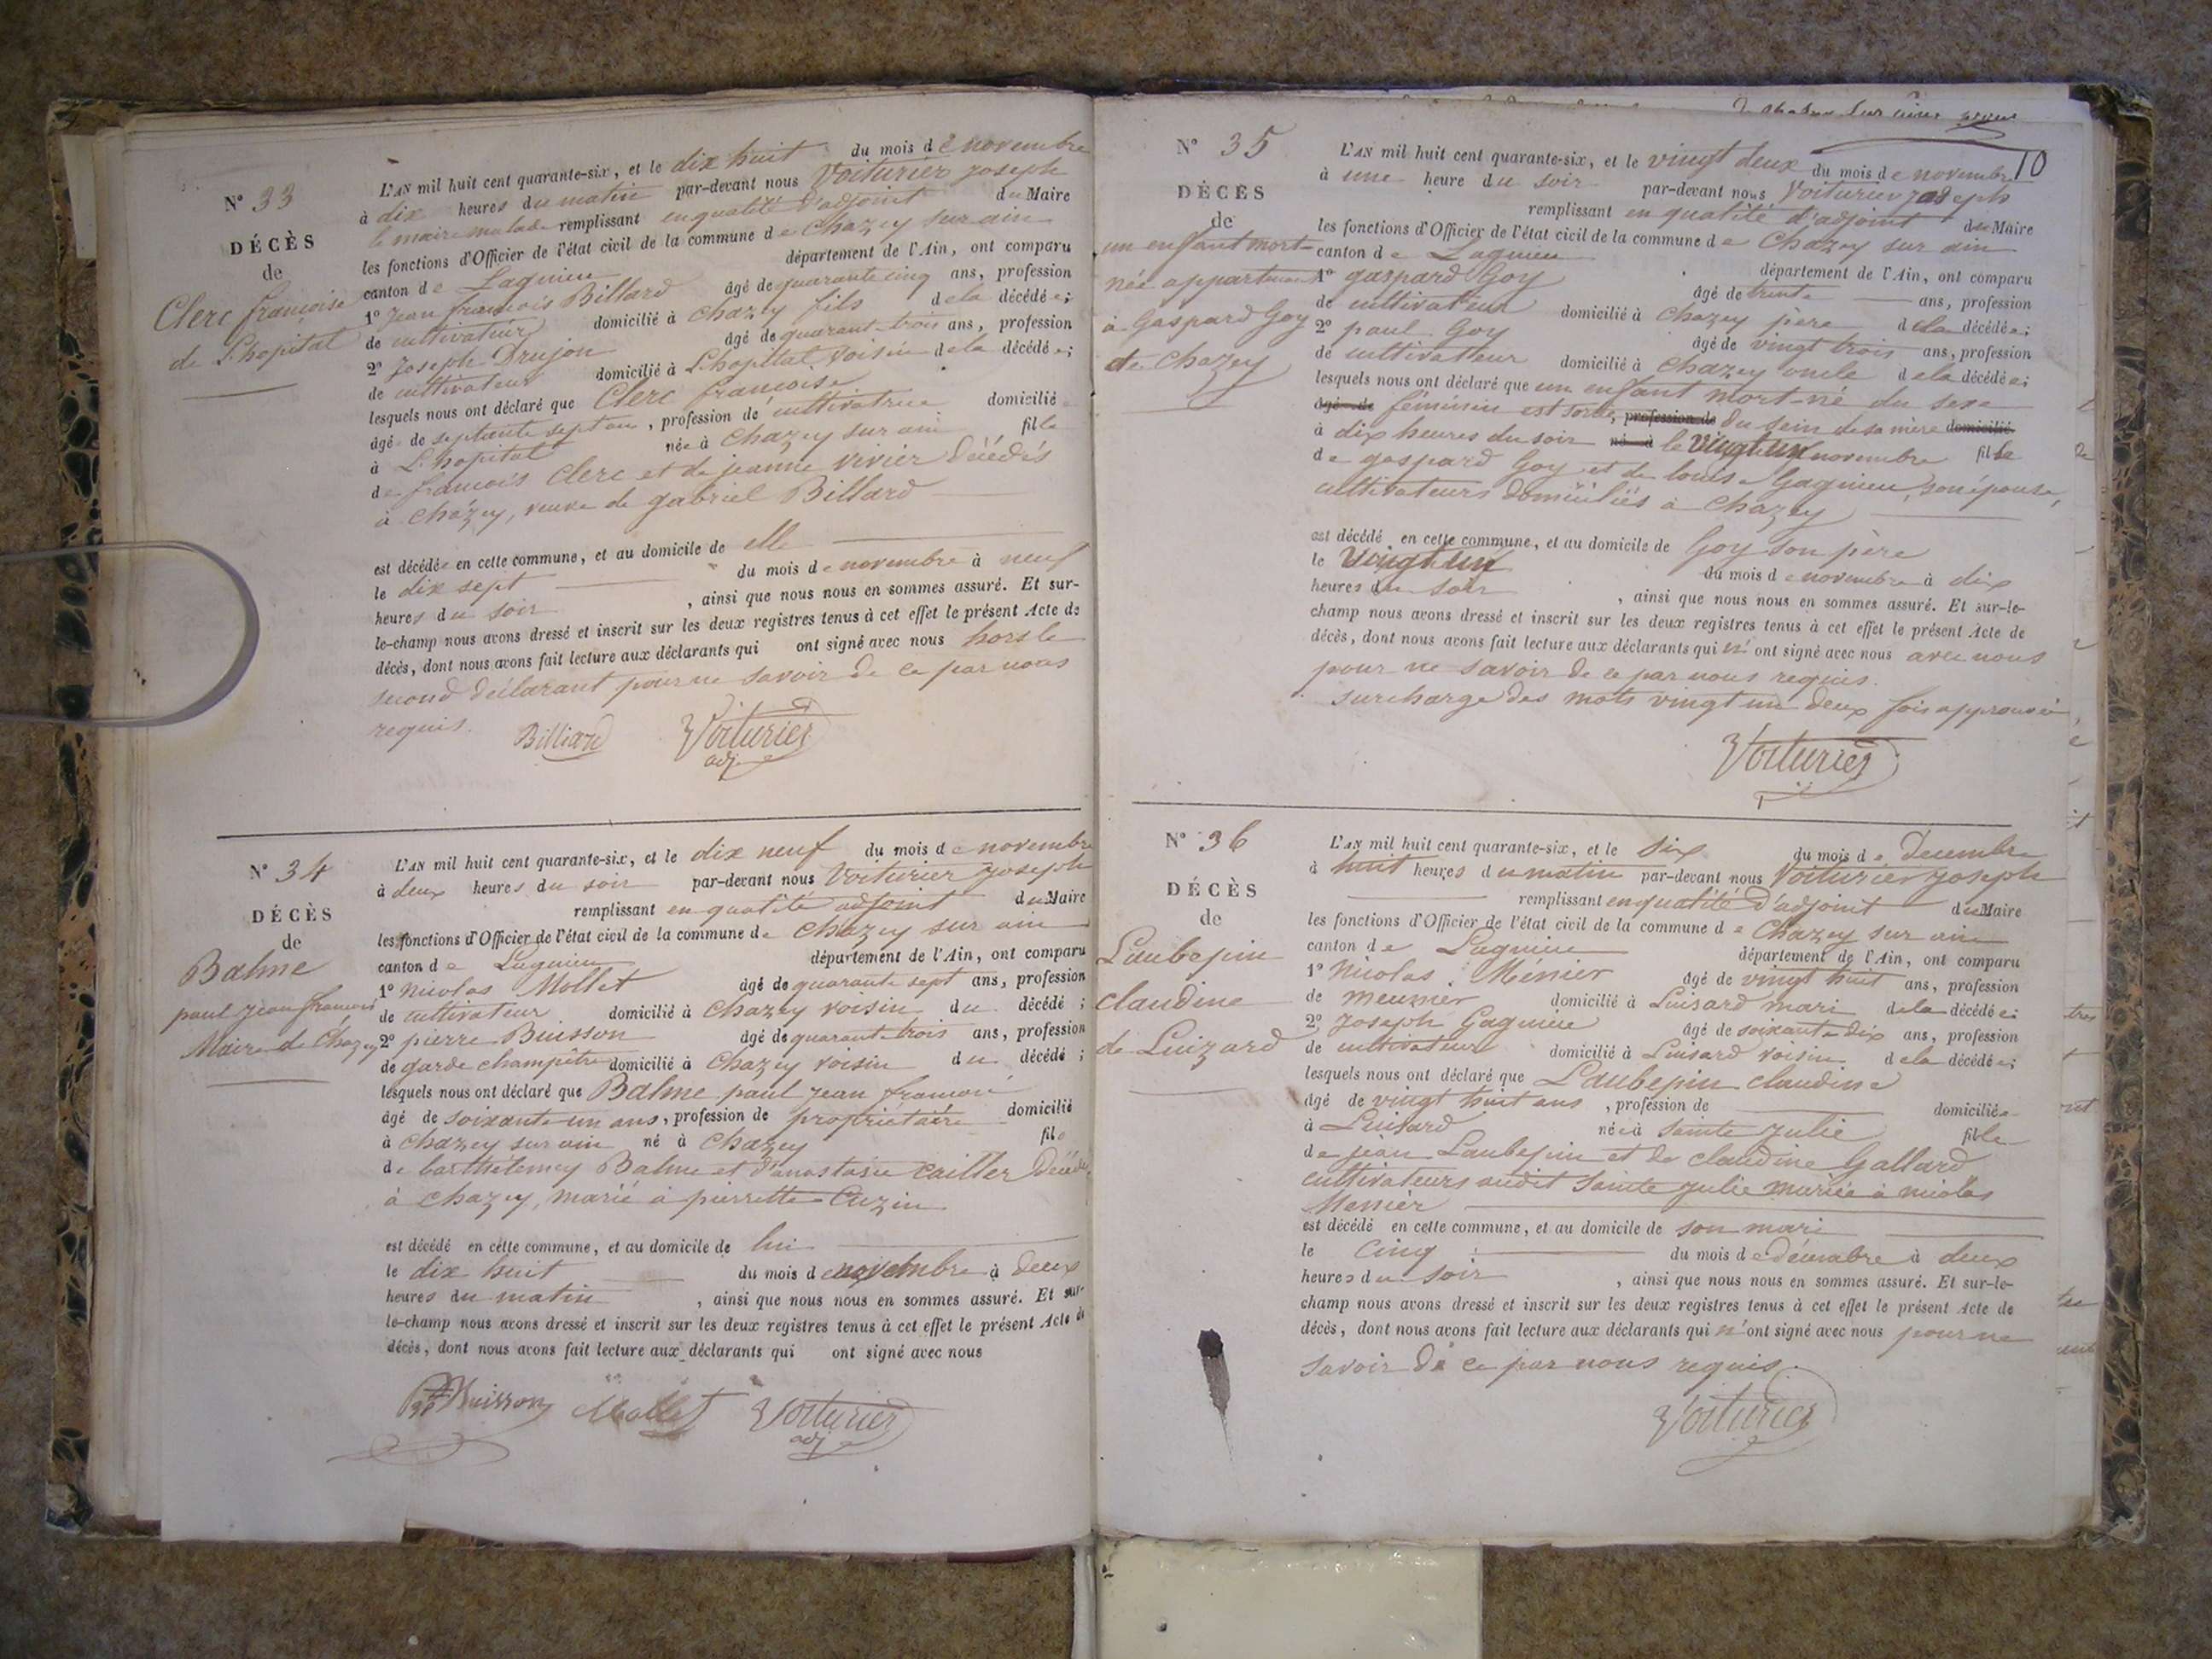 N° 33
DÉCÈS
de
Clerc françoise
de L'hopital
L'AN mil huit cent quarante-six, et le dix huit du mois de novembre
à dix heures du matin par-devant nous Voiturier joseph
le maire malade remplissant en qualité d'adjoint du Maire
les fonctions d'Officier de l'état civil de la commune de Chazey sur ain
canton de Lagnieu département de l'Ain, ont comparu
1° jean françois Billard âgé de quarante cinq ans, profession
de cultivateur domicilié à chazey fils de la décédée;
2° Joseph Drujon âgé de quarante-trois ans, profession
de cultivateur domicilié à L'hopital voisin de la décédée;
lesquels nous ont déclaré que Clerc françoise
âgée de septante sept ans, profession de cultivatrice domicilié
à L'hopital née à Chazey sur ain fille
de françois Clerc et de jeanne vivier décédés
à chazey, veuve de gabriel Billard
est décédée en cette commune, et au domicile de elle
le dix sept du mois de novembre à neuf
heures du soir, ainsi que nous nous en sommes assuré. Et sur-
le-champ nous avons dressé et inscrit sur les deux registres tenus à cet effet le présent Acte de
décès, dont nous avons fait lecture aux déclarants qui ont signé avec nous hors le
second déclarant pour ne savoir de ce par nous
requis.
Billiard Voiturier
adj.
N° 34
DÉCÈS
de
Balme
paul jean francois
Maire de Chazey
L'AN mil huit cent quarante-six, et le dix neuf du mois de novembre
à deux heures du soir par-devant nous Voiturier joseph
remplissant en qualité adjoint du Maire
les fonctions d'Officier de l'état civil de la commune de Chazey sur ain
canton de Lagnieu département de l'Ain, ont comparu
1° Nicolas Mollet âgé de quarante sept ans, profession
de cultivateur domicilié à Chazey voisin du décédé;
2° pierre Buisson âgé de quarante-trois ans, profession
de garde champêtre domicilié à Chazey voisin du décédé;
lesquels nous ont déclaré que Balme paul jean francois
âgé de soixante-un ans, profession de propriétaire domicilié
à Chazey sur ain né à Chazey fils
de barthélemy Balme et d'anastasie cailler décédés
à Chazey, marié à pierrette Cuzin
est décédé en cette commune, et au domicile de lui
le dix huit du mois de novembre à deux
heures du matin, ainsi que nous nous en sommes assuré. Et sur-
le-champ nous avons dressé et inscrit sur les deux registres tenus à cet effet le présent Acte de
décès, dont nous avons fait lecture aux déclarants qui ont signé avec nous
Buisson Mollet Voiturier
adj
10
N° 35
DÉCÈS
de
un enfant mort-
née appartenant
à Gaspard Goy
de Chazey
L'AN mil huit cent quarante-six, et le vingt deux du mois de novembre
à une heure du soir par-devant nous Voiturier joseph
remplissant en qualité d'adjoint du Maire
les fonctions d'Officier de l'état civil de la commune de Chazey sur ain
canton de Lagnieu département de l'Ain, ont comparu
1° gaspard Goy âgé de trente ans, profession
de cultivateur domicilié à Chazey père de la décédée;
2° paul Goy âgé de vingt trois ans, profession
de cultivateur domicilié à Chazey oncle de la décédée;
lesquels nous ont déclaré que un enfant mort-né du sexe
âgé de féminin est sortie, profession de du sein de sa mère domicilié
à dix heures du soir né à le vingt un novembre fille
de gaspard Goy et de louise Gagnieu, son épouse,
cultivateurs domiciliés à Chazey
est décédé en cette commune, et au domicile de Goy son père
le vingt un du mois de novembre à dix
heures du soir, ainsi que nous nous en sommes assuré. Et sur-le-
champ nous avons dressé et inscrit sur les deux registres tenus à cet effet le présent Acte de
décès, dont nous avons fait lecture aux déclarants qui n'ont signé avec nous avec nous
pour ne savoir de ce par nous requis.
surcharge des mots vingt un deux fois approuvée
Voiturier
N° 36
DÉCÈS
de
Laubepin
claudine
de Luizard
L'AN mil huit cent quarante-six, et le six du mois de Decembre
à huit heures du matin par-devant nous Voiturier joseph
remplissant en qualité d'adjoint du Maire
les fonctions d'Officier de l'état civil de la commune de Chazey sur ain
canton de Lagnieu département de l'Ain, ont comparu
1° Nicolas Menier âgé de vingt huit ans, profession
de meunier domicilié à Luisard mari de la décédée;
2° Joseph Gagnieu âgé de soixante dix ans, profession
de cultivateur domicilié à Luisard voisin de la décédée;
lesquels nous ont déclaré que Laubepin claudine
âgé de vingt huit ans, profession de domiciliée
à Luisard née à Sainte julie fille
de jean Laubepin et de claudine Gallard
cultivateurs audit Sainte julie mariée à nicolas
Menier
est décédé en cette commune, et au domicile de son mari
le cinq du mois de décembre à deux
heures du soir, ainsi que nous nous en sommes assuré. Et sur-le-
champ nous avons dressé et inscrit sur les deux registres tenus à cet effet le présent Acte de
décès, dont nous avons fait lecture aux déclarants qui n'ont signé avec nous pour ne
savoir de ce par nous requis.
Voiturier